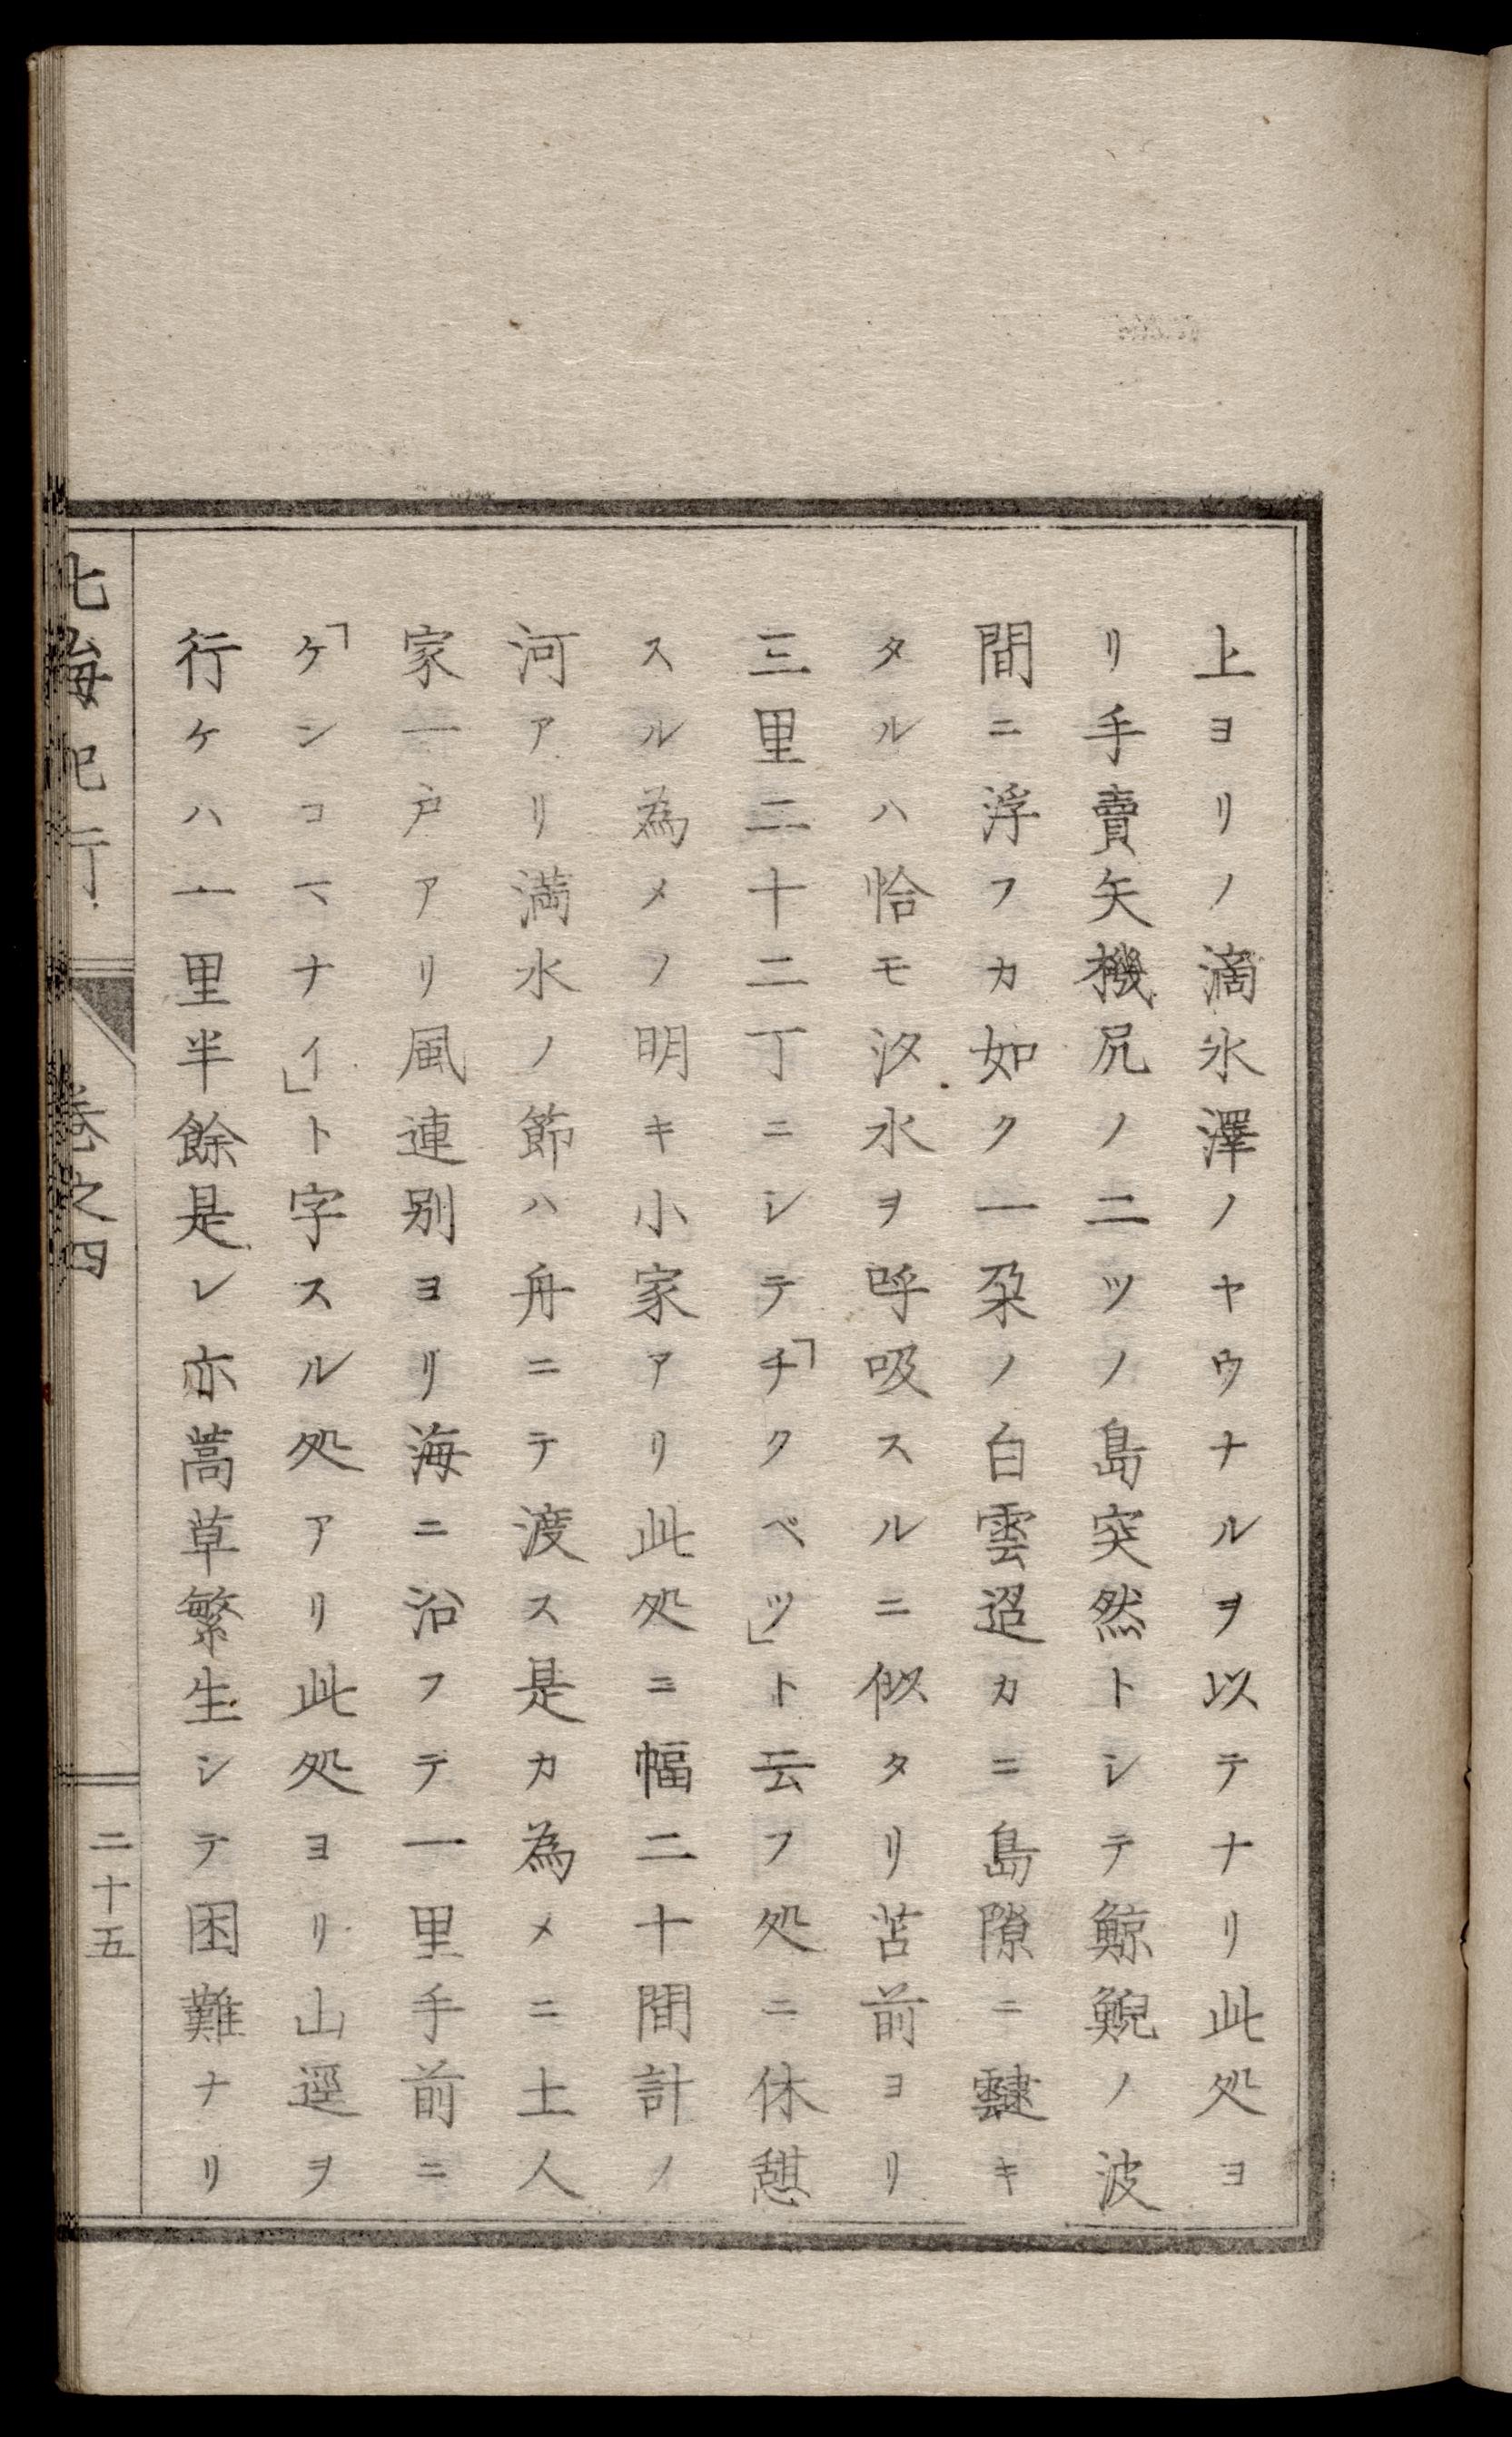 上ヨリノ滴水澤ノヤウナルヲ以テナリ此処ヨ
リ手賣矢機尻ノ二ツノ島突然トシテ鯨鯢ノ波
間ニ浮フカ如ク一朶ノ白雲迢カニ島隙ニ靆キ
タルハ恰モ汐水ヲ呼吸スルニ似タリ苫前ヨリ
三里二十二丁ニシテ「チクベツ」ト云フ処ニ休憩
スル為メノ明キ小家アリ此処ニ幅二十間計ノ
河アリ満水ノ節ハ舟ニテ渡ス是カ為メニ土人
家一戸アリ風連別ヨリ海ニ沿フテ一里手前ニ
「ケンコマナイ」ト字スル処アリ此処ヨリ山逕ヲ
行ケハ一里半餘是レ亦蒿草繁生シテ困難ナリ
北海紀行
巻之四
二十五